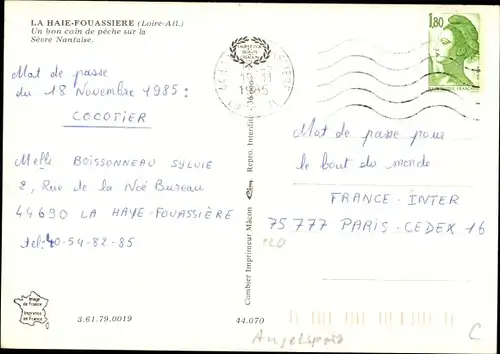 LA HAIE-FOUASSIERE (Loire-Atl.)
Un bon coin de pêche sur la
Sèvre Nantaise.
Mot de passe
du 18 Novembre 1985 :
COCOTIER
Melle BOISSONNEAU SYLVIE
2, Rue de la Noë Bureau
44690 LA HAYE-FOUASSIÈRE
tel-40-54-82-85
Image
de France
Imprimée
en France
3.61.79.0019
44.070
Combier Imprimeur Mâcon
Repro. Interdite
1985
1,80
Mot de passe pour
le bout du monde
FRANCE-INTER
75777 PARIS-CEDEX 16
Angelsport
C